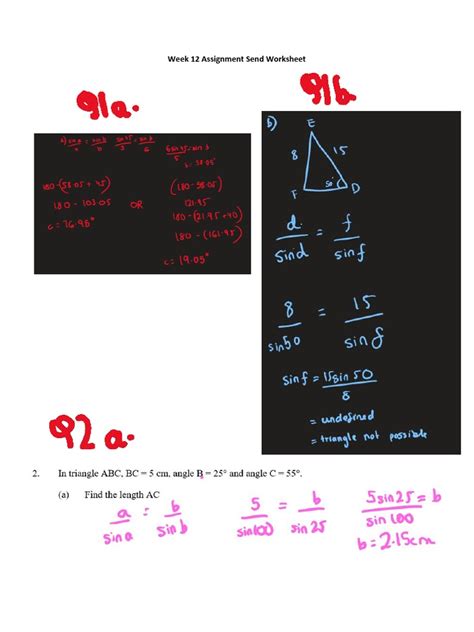 Week 12 Assignment Send Worksheet
Q1a.
Q1b
a) sin a / a = sin b / b
6 sin 45 = sin b / 5
b = 58.05
180 - (58.05 + 45)
180 - 103.05
c = 76.95°
OR
(180 - 58.05)
121.95
180 - (161.95)
c = 19.05°
b)
E
8
15
F
50
D
d / sin d = f / sin f
8 / sin 50 = 15 / sin f
sin f = 15 sin 50 / 8
= undefined
= triangle not possible
Q2 a.
2. In triangle ABC, BC = 5 cm, angle B = 25° and angle C = 55°.
(a) Find the length AC
a / sin a = b / sin b
5 / sin 100 = b / sin 25
5 sin 25 / sin 100 = b
b = 2.15cm